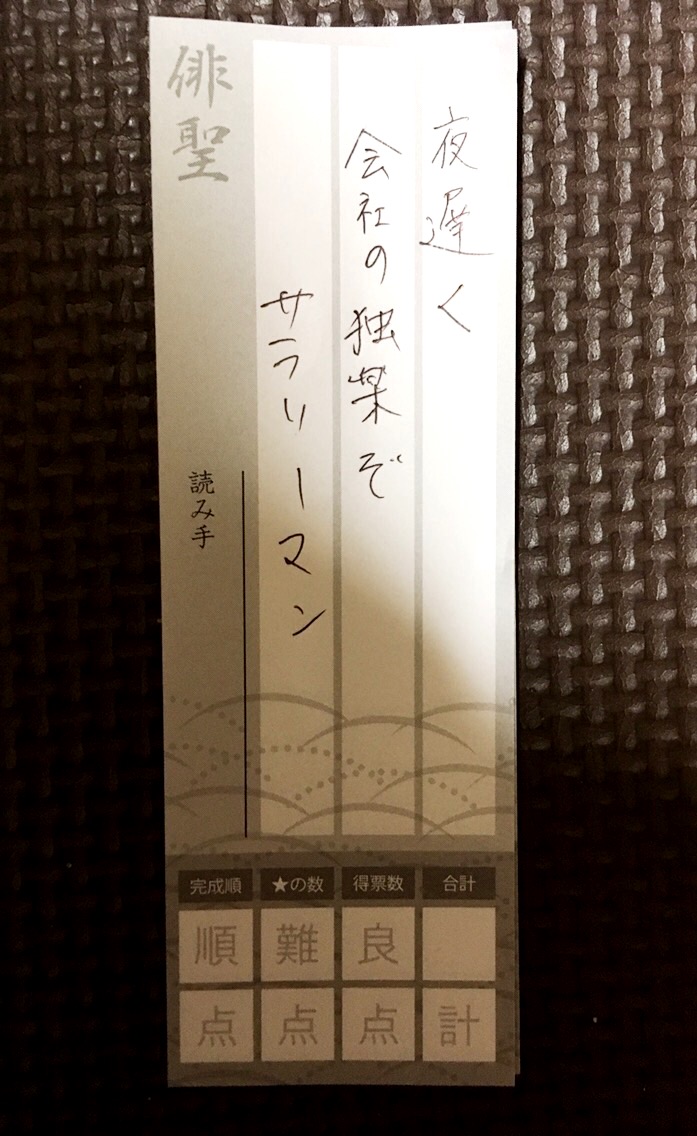 夜遅く
会社の独楽ぞ
サラリーマン
俳聖
読み手
完成順 ★の数 得票数 合計
順 難 良
点 点 点 計